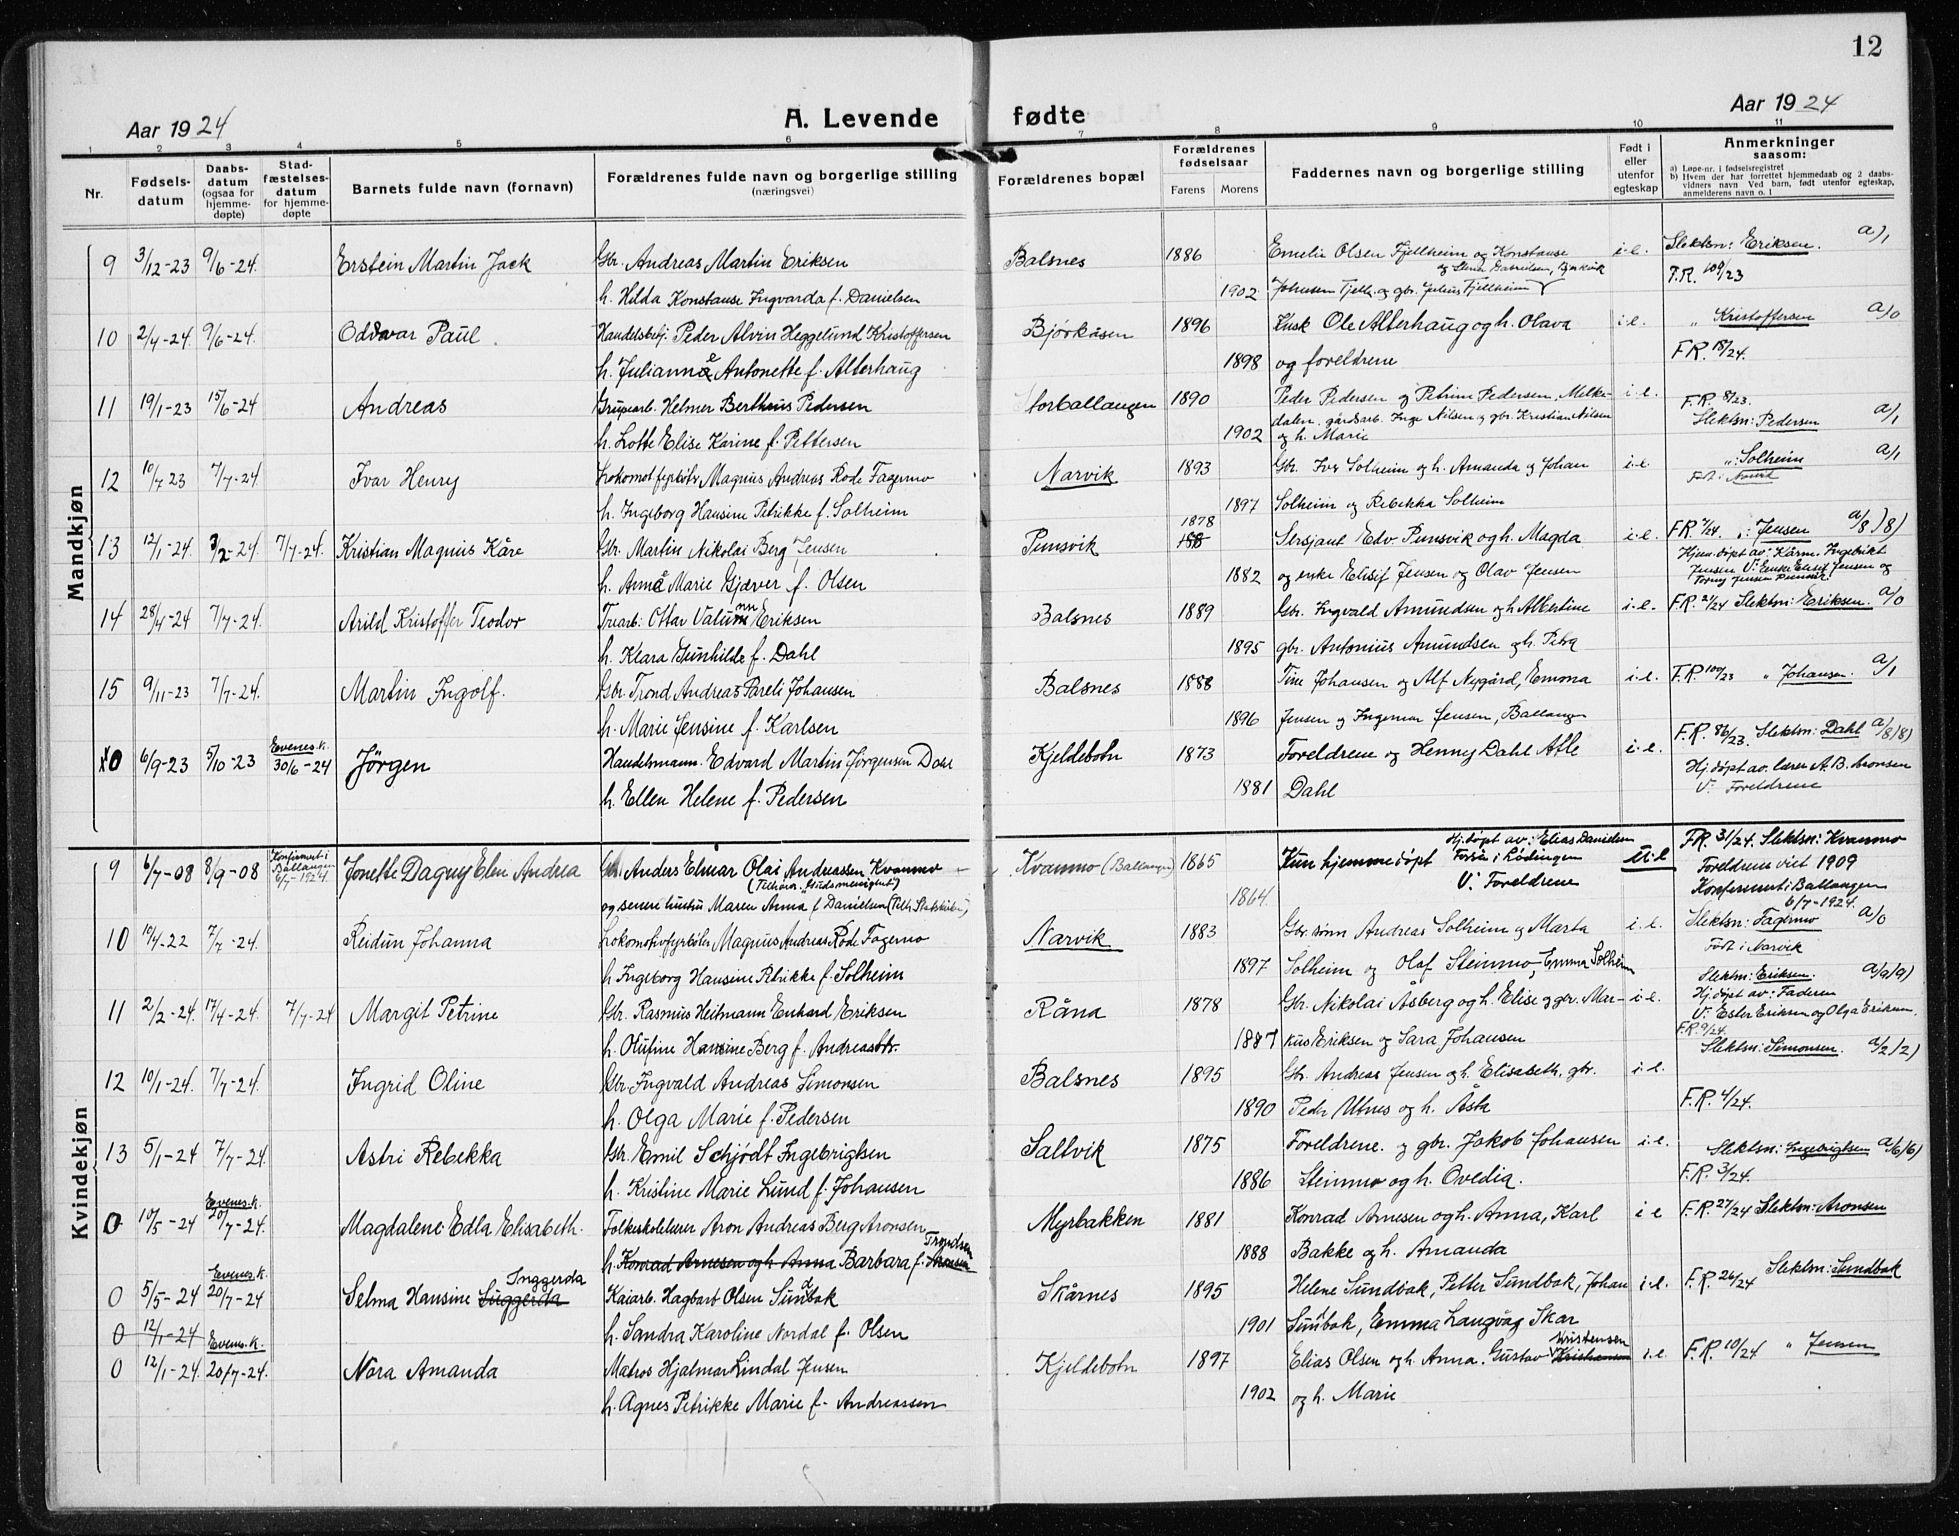 12
Aar 1924
A. Levende fødte
Aar 1924
1 2 3 4 5 6 7 8 9 10 11
Nr.
Fødsels-
datum
Daabs-
datum
(ogsaa for
hjemme-
døpte)
Stad-
fæstelses-
datum
for hjemme-
døpte
Barnets fulde navn (fornavn)
Forældrenes fulde navn og borgerlige stilling
(næringsvei)
Forældrenes bopæl
Forældrenes
fødselsaar
Farens Morens
Faddernes navn og borgerlige stilling
Født i
eller
utenfor
egteskap
Anmerkninger
saasom:
a) Løpe-nr. i fødselsregistret
b) Hvem der har forrettet hjemmedaab og 2 daabs-
vidners navn Ved barn, født utenfor egteskap,
anmelderens navn o. l
Mandkjøn
9 3/12-23 9/6-24. Erstein Martin Jack Gbr. Andreas Martin Eriksen Balsnes 1886 Emelie Olsen Fjellheim og Konstanse i.e. Slektsn: Eriksen. a/1
h. Hilda Konstanse Ingvarda f. Danielsen 1902 Johansen Fjellh. og gbr. Julius Fjellheim F.R. 109/23
10 2/4-24. 9/6-24. Oddvar Paul. Handelsbetj. Peder Alvin Heggelund Kristoffersen Bjørkåsen 1896 Kusk Ole Alterhaug og h. Olava i.e. " Kristoffersen a/0
h. Julianne Antonette f. Alterhaug 1898 og foreldrene F.R. 18/24.
11 19/1-23 15/6-24 Andreas Grubearb. Helmer Bertheus Pedersen Storballangen 1890 Peder Pedersen og Petrine Pedersen, Melke- i.e. F.R. 8/23.
dalen. gårdsarb. Inge Nilsen og gbr. Kristian Nilsen Slektsn: Pedersen a/1
h. Lotte Elise Karine f. Pettersen 1902 og h. Marie
12 10/7 23 7/7-24. Ivar Henry Lokomotfyrbøter Magnus Andreas Rode Fagermo Narvik 1893 Gbr. Ivar Solheim og h. Amanda og Johan i.e. ": Solheim a/1
Født i Narvik
h. Ingeborg Hansine Petrikke f. Solheim 1897 Solheim og Rebekka Solheim
13 12/1-24. 3/2-24. 7/7-24. Kristian Magnus Kåre Gbr. Martin Nikolai Berg Jensen Punsvik 1878 Sersjant Edv. Punsvik og h. Magda i.e. F.R. 7/24 ": Jensen a/8)8)
Hjem.døpt av: Kårm. Ingebrikt
Jensen V: Enke Elisif Jensen og
h. Anna Marie Gjæver f. Olsen 1882 og enke Elisif Jensen og Olav Jensen
14 28/4-24 7/7-24. Arild Kristoffer Teodor Truarb: Ottar Valumnn Eriksen Balsnes 1889 Gbr. Ingvald Amundsen og h Albertine i.e. F.R. 21/24 Slektsn: Eriksen. a/0
h. Klara Gunhilde f. Dahl 1895 gbr. Antonius Amundsen og h. Petra
15 9/11-23 7/7-24. Martin Ingolf. Gbr. Trond Andreas Pareli Johansen Balsnes 1888 Tine Johansen og Alf Nygård, Emona i.e. F.R. 100/23 " Johansen. a/1
h. Marie Jensine f. Karlsen 1896 Jensen og Ingemar Jensen, Ballangen
0 6/9-23 5/10-23 Evenes k. 30/6-24 Jörgen Handelsmann. Edvard Martin Jörgensen Dahl Kjeldebotn 1873 Foreldrene og Henny Dahl Atle i.e. F.R. 86/23. Slektsn: Dahl a/8/8)
Hj. døpt av. lærer A. B. Aronsen
h. Ellen Helene f. Pedersen 1881 Dahl V: Foreldrene
Kvindekjøn
9 6/7-08 8/9-08 Konfirmert i Ballangen 6/7-1924. Jonette Dagny Elen Andrea Anders Elmar Olai Andreassen Kvanmo Kvanmo (Ballangen) 1865 Kun hjemmedøpt Hj.døpt av: Elias Danielsen u.e F.R. 31/24. Slektsn: Kvanmo
Forså i Lødingen Foreldrene viet 1909
V: Foreldrene Konfirmert i Ballangen
6/7-1924.
og senere hustru Maren Anna f Danielsen 1864.
10 10/4-22 7/7-24. Reidun Johanna Lokomotivfyrbøter Magnus Andreas Rode Fagermo Narvik 1883 Gbr sønn Andreas Solheim og Marta i.e. Slektsn: Fagermo a/0
Født i Narvik
h. Ingeborg Hansine Petrikke f. Solheim 1897 Solheim og Olaf Steinmo, Emma Solheim
11 2/2-24. 17/4-24. 7/7-24 Margit Petrine Gbr. Rasmus Heitmann Enhard Eriksen Råna 1878 Gbr. Nikolai Åsberg og h. Elise og gbr. Mar- i.e. Slektsn: Eriksen. a/9/9)
Hj. døpt av: Faderen
V: Ester Eriksen og Olga Eriksen.
h. Olufine Hansine Berg f. Andreasdtr. 1887 kus Eriksen og Sara Johansen F.R. 9/24.
12 10/1-24. 7/7-24. Ingrid Oline Gbr. Ingvald Andreas Simonsen Balsnes 1895 Gbr. Andreas Jensen og h. Elisabeth, gbr. i.e. Slektsn: Simonsen. a/2/2)
h. Olga Marie f. Pedersen 1890 Peder Utnes og h. Åsta F.R. 4/24.
13 5/1-24 7/7-24. Astri Rebekka Gbr. Emil Schjödt Ingebrigtsen Saltvik 1875 Foreldrene. og gbr. Jakob Johansen i.e. Slektsn: Ingebrigtsen a/6/6)
h. Kristine Marie Lund f. Johansen 1886 Steinmo og h. Ovedia. F.R. 3/24.
0 10/5-24 Evenes.k. 20/7-24. Magdalene Edla Elisabeth. Folkeskolelærer Aron Andreas Berg Aronsen Myrbakken 1881 Konrad Arnesen og h. Anna, Karl i e F.R. 27/24 Slektsn: Aronsen
h. Konrad Arnesen og h. Anna Barbara f. Aronsen Trondsen 1888 Bakke og h. Amanda
0 5/5-24 Evenes.k. 20/7-24 Selma Hansine Suggerda Inggerda Kaiarb. Hagbart Olsen Sundbak Skårnes 1895 Helene Sundbak, Petter Sundbak, Johan i.e. F.R. 26/24 Slektsn: Sundbak
0 12/1-24 Evenes.k. h. Sandra Karoline Nordal f. Olsen 1901 Sundbak, Emma Langvåg Skar
0 12/1-24. 20/7-24. Nora Amanda Matros Hjalmar Lindal Jensen Kjeldebotn 1897 Elias Olsen og h. Anna. Gustav Kristensen i.e. F.R. 10/24 " Jensen
h. Agnes Petrikke Marie f. Andreassen 1902 og h. Marie